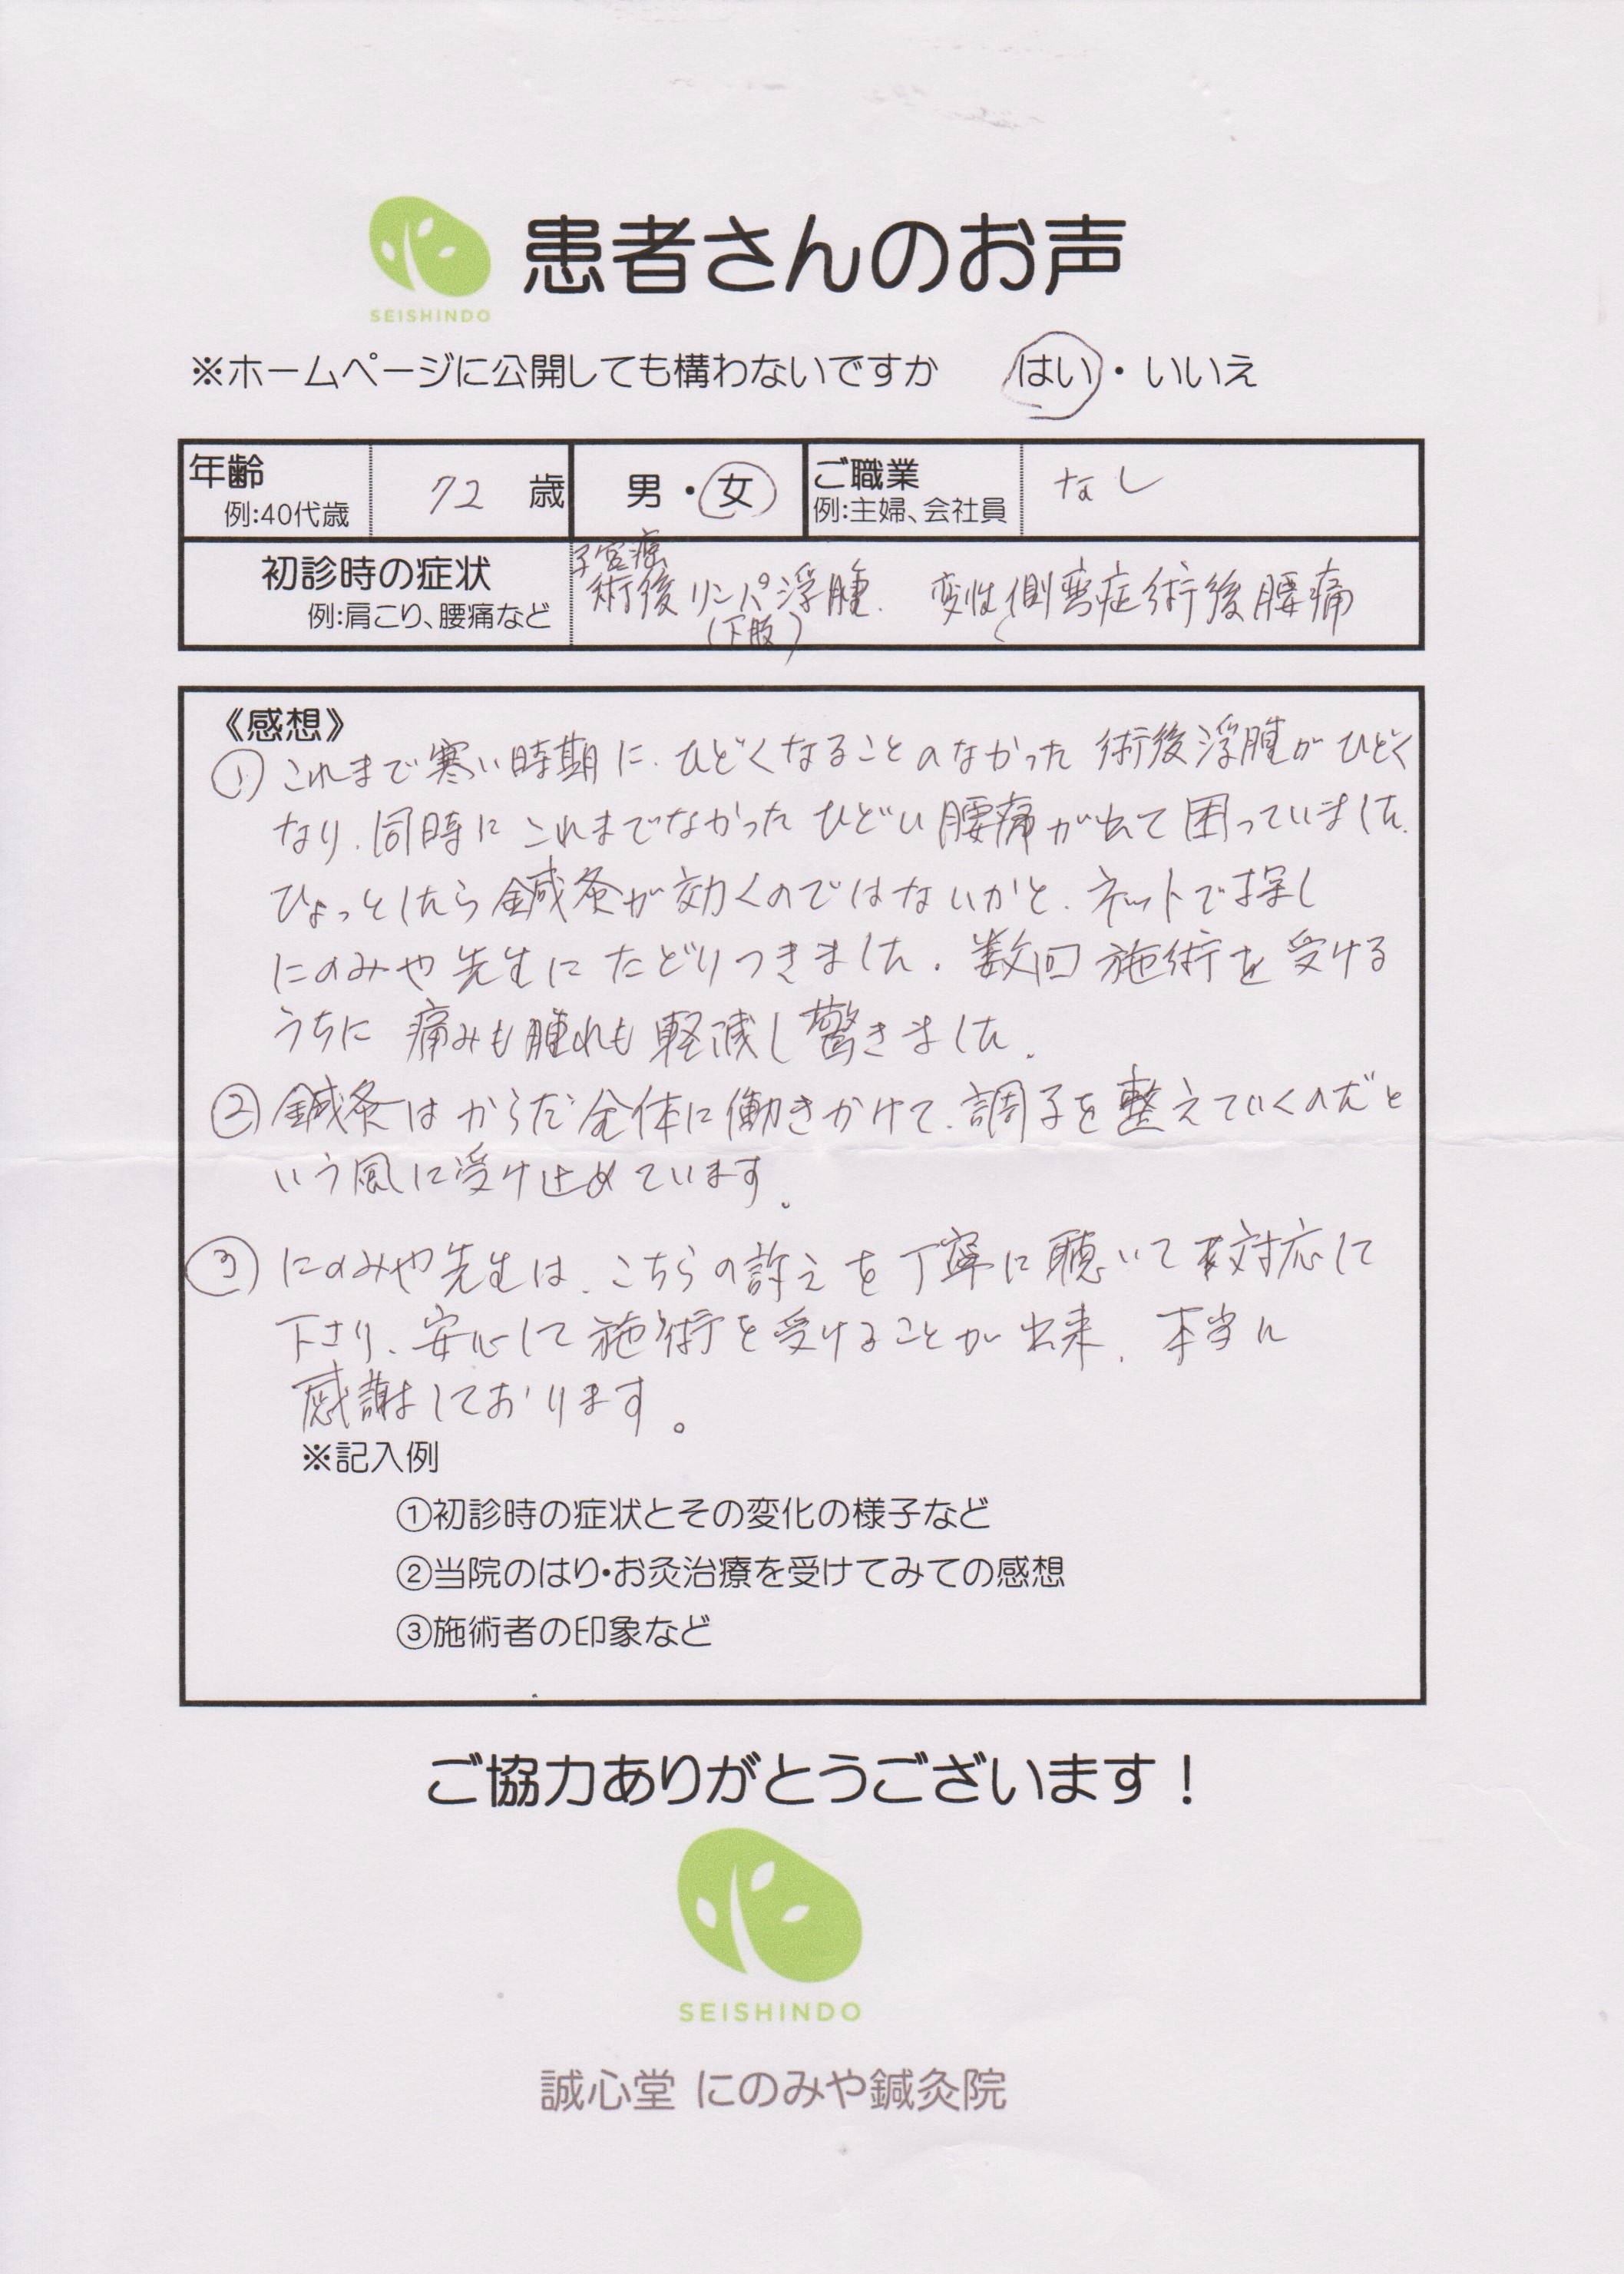 SEISHINDO
患者さんのお声
※ホームページに公開しても構わないですか はい・いいえ
年齢
例:40代歳
72 歳
男・女
ご職業
例:主婦、会社員
なし
初診時の症状
例:肩こり、腰痛など
子宮癌
術後リンパ浮腫. 変性側弯症術後腰痛
(下肢)
《感想》
① これまで寒い時期に、ひどくなることのなかった 術後浮腫がひどく
なり、同時にこれまでなかったひどい腰痛が出て困っていました.
ひょっとしたら鍼灸が効くのではないかと、ネットで探し
にのみや先生にたどりつきました. 数回施術を受ける
うちに痛みも腫れも軽減し驚きました.
② 鍼灸はからだ全体に働きかけて、調子を整えていくのだと
いう風に受け止めています.
③ にのみや先生は、こちらの訴えを丁寧に聴いて対応して
下さり、安心して施術を受けることが出来、本当に
感謝しております。
※記入例
①初診時の症状とその変化の様子など
②当院のはり・お灸治療を受けてみての感想
③施術者の印象など
ご協力ありがとうございます！
SEISHINDO
誠心堂 にのみや鍼灸院